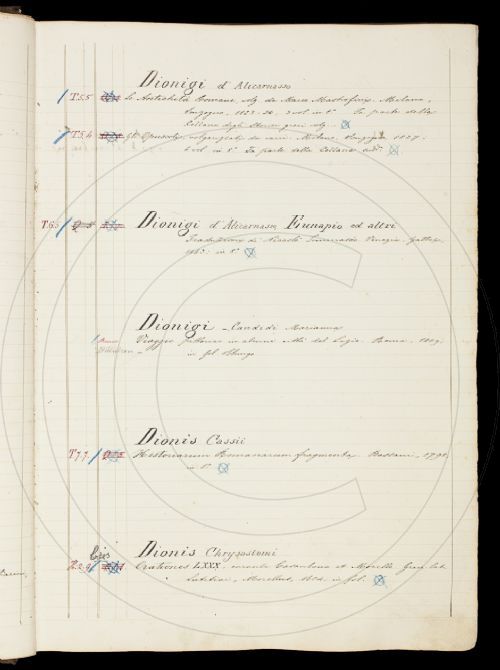 Dionigi d'Alicarnasso
T.5.5 Le Antichità Romane, Volg. da Marco Mastrofini. Milano,
Sonzogno, 1823-24, 3 vol. in 8° Fa parte della
Collana degli Storici greci volg.
T.5.4 Gli Opuscoli, volgarizzati da varii. Milano, Sonzogno 1827
in 8° Fa parte della Collana
T.6.5 Dionigi d'Alicarnasso, Eunapio ed altri
Traduzione di Venezia
in 8°
Dionigi - Candidi Marianna
Viaggio pittorico in alcune città del Lazio. Roma, 1809
in fol. oblungo
Dionis Cassii
T.7.7 Historiarum Romanarum fragmenta. Bassani, 1798
in 8°
Dionis Chrysostomi
bis
Orationes LXXX, Casaubono et Morello Graec. Lat.
Lutetiae, Morellus, in fol.